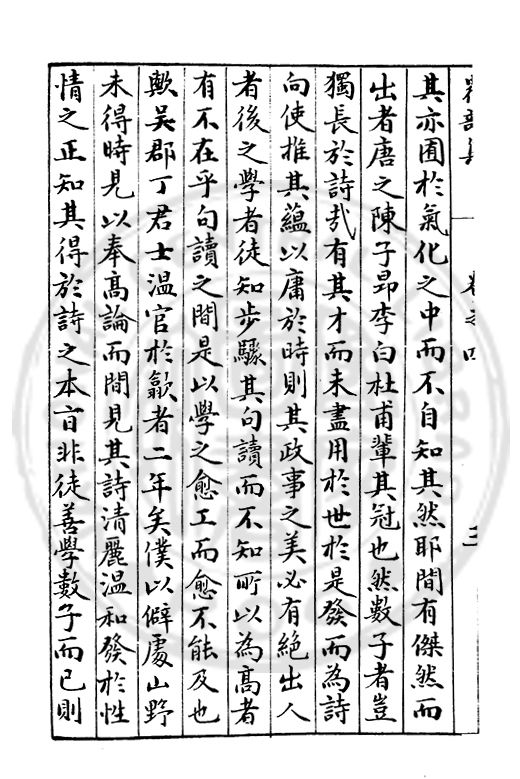 卷之四
三
其亦囿於氣化之中而不自知其然耶間有傑然而
出者唐之陳子昂李白杜甫輩其冠也然數子者豈
獨長於詩㦲有其才而未盡用於世於是發而為詩
向使推其蘊以庸於時則其政事之美必有絕出人
者後之學者徒知步驟其句讀而不知所以為髙者
有不在乎句讀之間是以學之愈工而愈不能及也
歟吴郡丁君士温官於歙者二年矣僕以僻處山野
未得時見以奉髙論而間見其詩清麗温和發於性
情之正知其得於詩之本盲非徒善學數子而已則